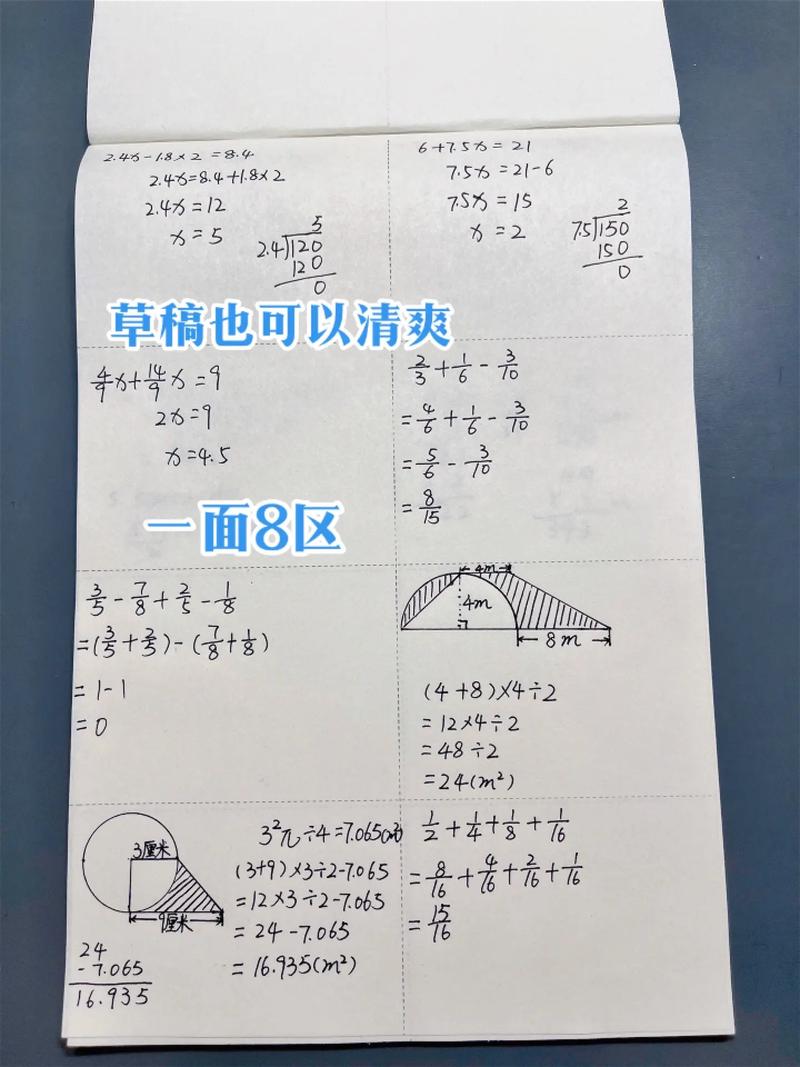 2.4x-1.8×2=8.4
2.4x=8.4+1.8×2
2.4x=12
x=5
5
2.4)120
120
0
6+7.5x=21
7.5x=21-6
7.5x=15
x=2
2
7.5)150
150
0
草稿也可以清爽
4/9x+14/9x=9
2x=9
x=4.5
2/3+1/6-3/10
=4/6+1/6-3/10
=5/6-3/10
=8/15
一面8区
3/5-7/8+2/5-1/8
=(3/5+2/5)-(7/8+1/8)
=1-1
=0
4m
4m
8m
(4+8)×4÷2
=12×4÷2
=48÷2
=24(m²)
3厘米
9厘米
24
-7.065
16.935
3²π÷4=7.065(m²)
(3+9)×3÷2-7.065
=12×3÷2-7.065
=24-7.065
=16.935(m²)
1/2+1/4+1/8+1/16
=8/16+4/16+2/16+1/16
=15/16